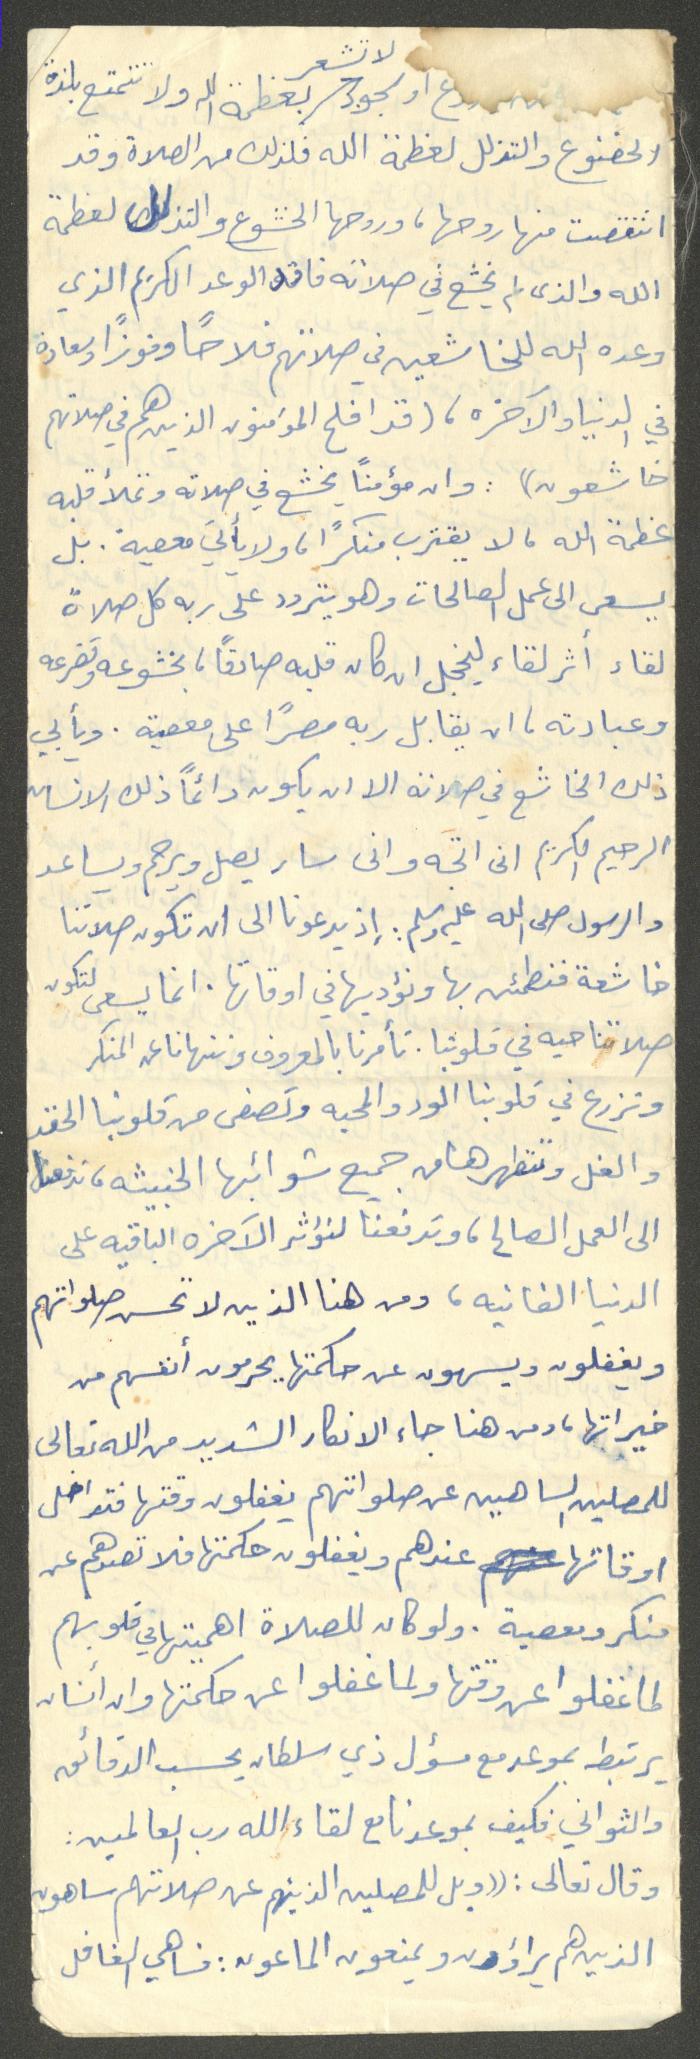 لا تشعر
او سجود بعظمة الله ولا تتمتع بلذة
الخضوع والتذلل لعظمة الله فلذلك من الصلاة وقد
انتقصت منها روحها، وروحها الخشوع والتذلل لعظمة
الله والذى لم يخشع في صلاته فاقد الوعد الكريم الذي
وعده الله للخاشعين في صلاتهم فلاحًا وفوزًا وسعادة
في الدنيا والآخره، (قد افلح المؤمنون الذين هم في صلاتهم
خاشعون)) : وان مؤمنًا يخشع في صلاته وتملأ قلبه
عظمة الله، لا يقترب منكرًا، ولا يأتي معصية. بل
يسعى الى عمل الصالحات وهو يتردد على ربه كل صلاة
لقاء أثر لقاء ليخجل ان كان قلبه صادقًا، بخشوعه وتضرعه
وعبادته، ان يقابل ربه مصرًا على معصية. ويأبي
ذلك الخاشع في صلاته الا ان يكون دائمًا ذلك الانسان
الرحيم الكريم انى اتجه وانى سار يصل ويرحم ويساعد
والرسول صلى الله عليه وسلم: إذ يدعونا الى ان تكون صلاتنا
خاشعة فنطمئن بها ونؤديها في اوقاتها. انما يسعى لتكون
صلاتنا حيه في قلوبنا. تأمرنا بالمعروف وتنهانا عن المنكر
وتزرع في قلوبنا الود والمحبه وتصفى من قلوبنا الحقد
والغل وتطهرها من جميع شوائبها الخبيثه، تدفعنا
الى العمل الصالح، وتدفعنا لنؤثر الآخره الباقيه على
الدنيا الفانيه، ومن هنا الذين لا تحسن صلواتهم
ويغفلون ويسهون عن حكمتها يحرمون أنفسهم من
خيراتها، ومن هنا جاء الانكار الشديد من الله تعالى
للمصلين الساهين عن صلواتهم يغفلون وقتها فتداخل
اوقاتها عندهم ويغفلون حكمتها فلا تصدهم عن
منكر ومعصية. ولو كان للصلاة اهميتها في قلوبهم
لما غفلوا عن وقتها ولما غفلوا عن حكمتها وان أنسان
يرتبط بموعد مع مسؤل ذي سلطان يحسب الدقائق
والثواني فكيف بموعدنا مع لقاء الله رب العالمين:
وقال تعالى: ((ويل للمصلين الذينهم عن صلاتهم ساهون
الذين هم يراؤون ويمنعون الماعون: فساهي الغافل